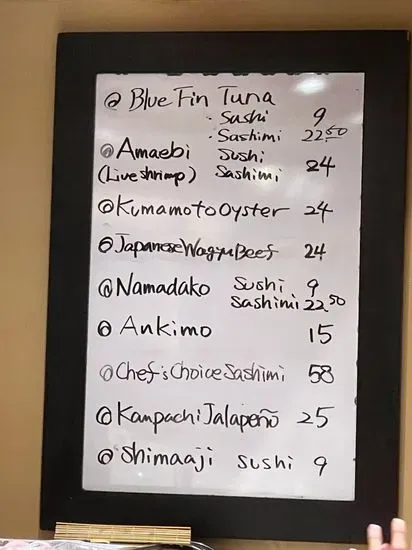 @ Blue Fin Tuna
· Sushi 9
· Sashimi 22.50
@ Amaebi Sushi
(Live shrimp) Sashimi 24
@ Kumamoto Oyster 24
@ Japanese Wagyu Beef 24
@ Namadako Sushi 9
Sashimi 22.50
@ Ankimo 15
@ Chef's Choice Sashimi 58
@ Kampachi Jalapeño 25
@ Shimaaji Sushi 9